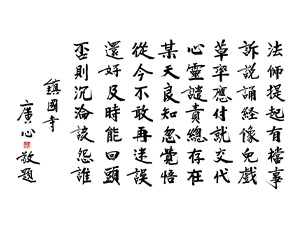 法師提起有檔事
訴說誦經像兒戲
草率應付就交代
心靈譴責總存在
某天良知忽覺悟
從今不敢再迷誤
還好及時能回頭
否則沉淪該怨誰
鎮國寺
廣心
敬題